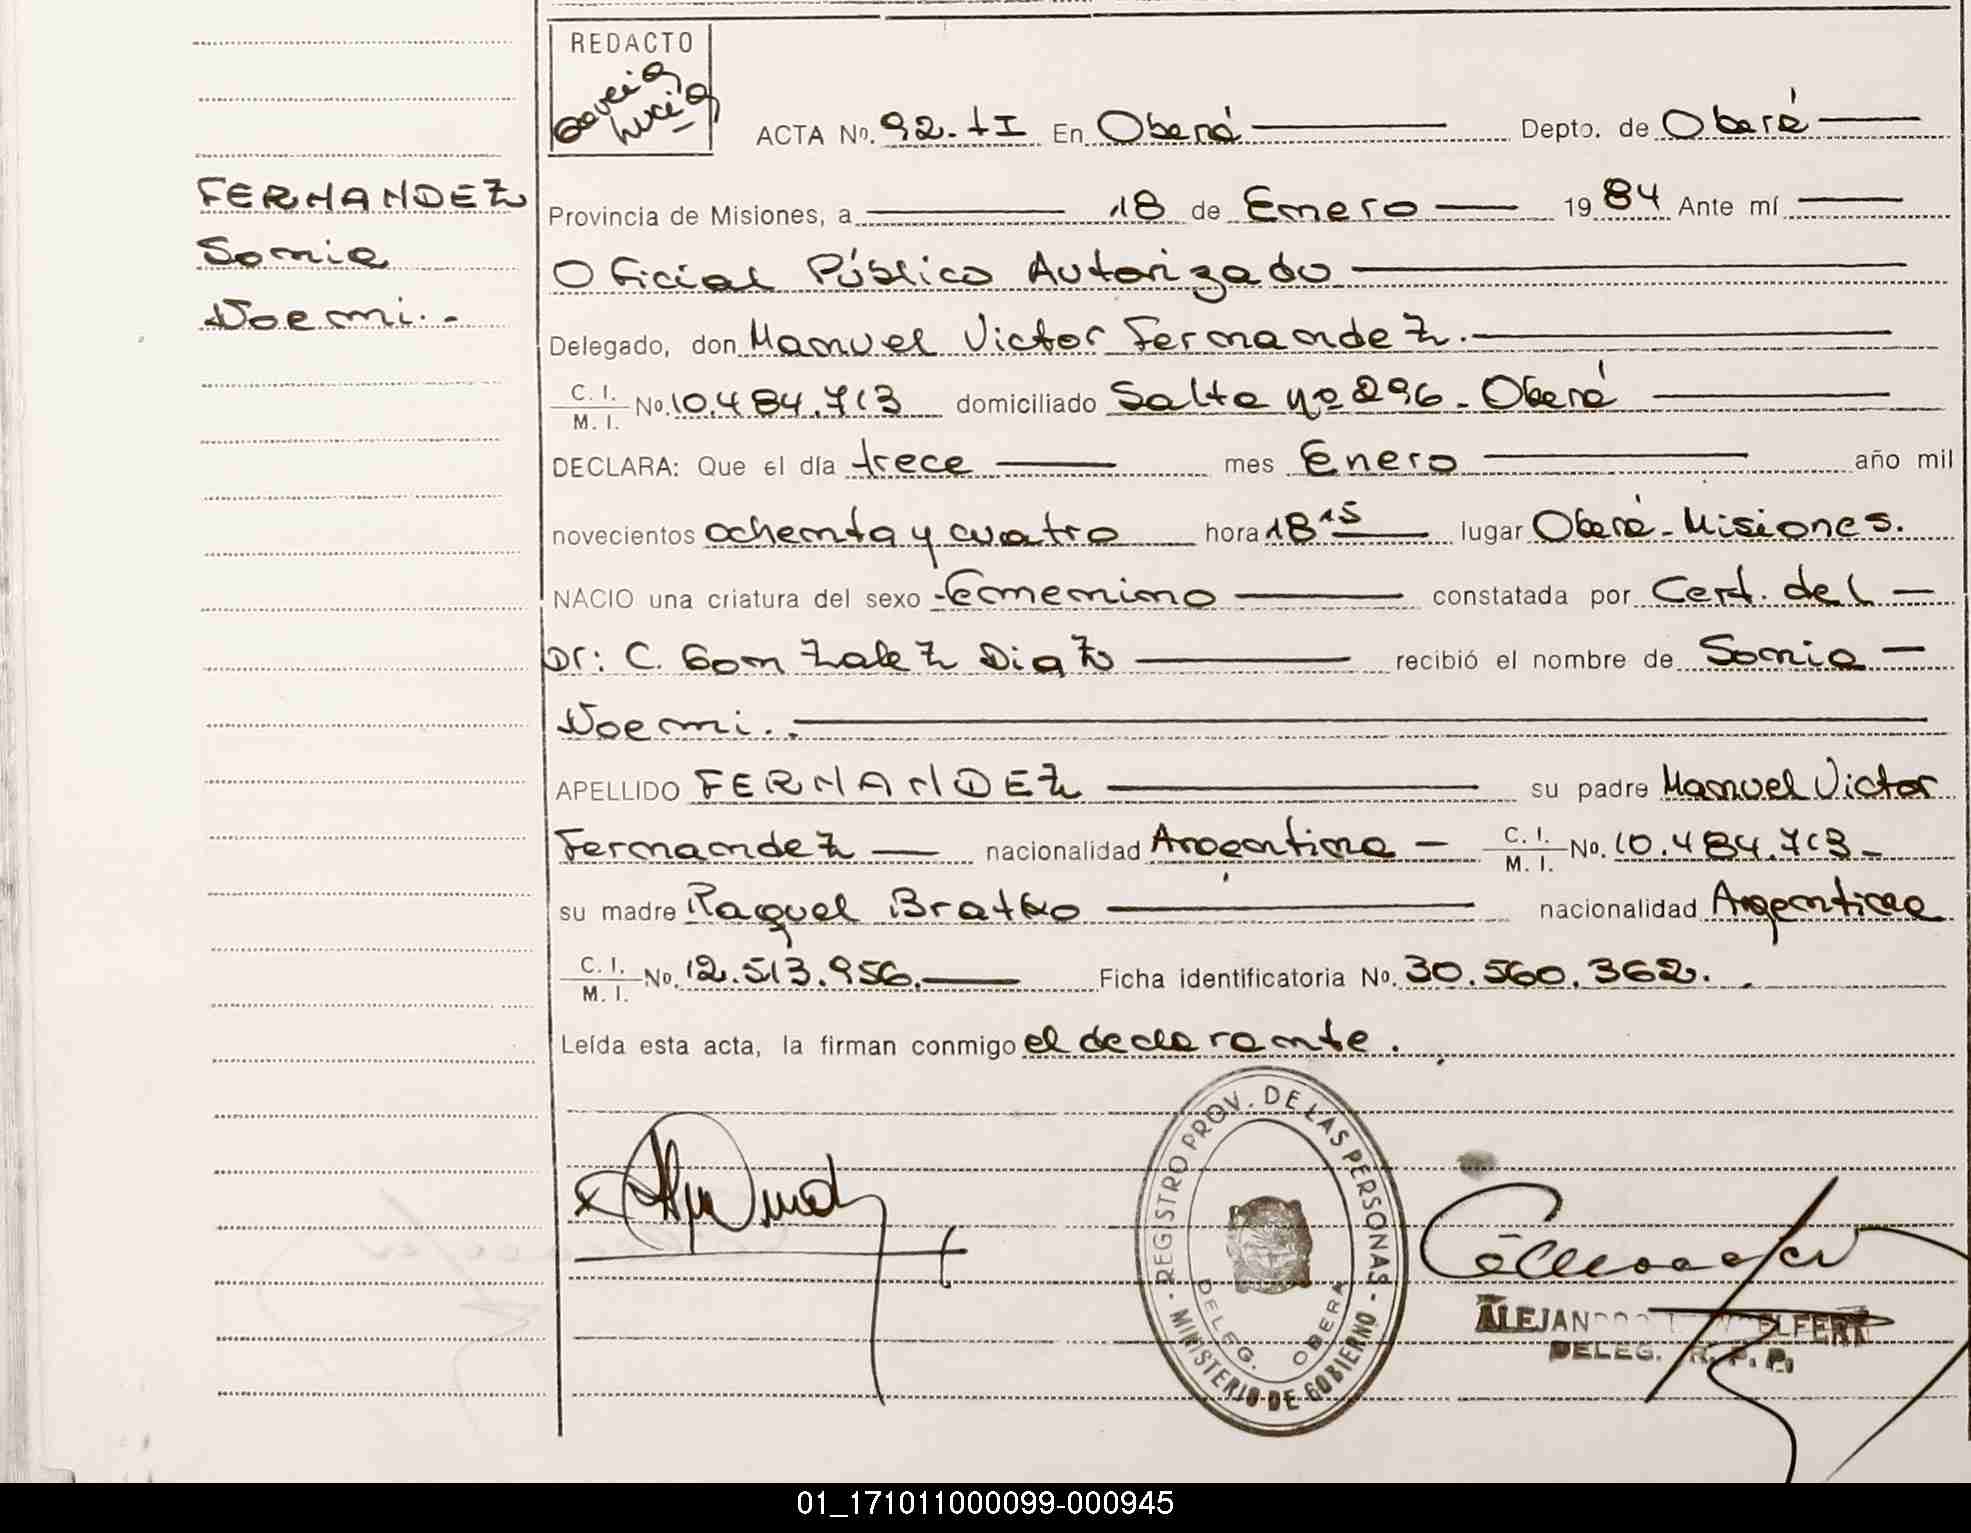 REDACTO
García
Lucía
ACTA No. 92. tI En Oberá Depto. de Oberá
FERNANDEZ
Sonia
Noemi..-
Provincia de Misiones, a 18 de Enero 1984 Ante mí
Oficial Público Autorizado
Delegado, don Manuel Victor Fernandez.
C. I. / M. I. No. 10.484.713 domiciliado Salta nº 296 - Oberá
DECLARA: Que el día trece mes Enero año mil
novecientos ochenta y cuatro hora 18 15 lugar Oberá - Misiones.
NACIO una criatura del sexo Femenino constatada por Cert. del
Dr: C. Gonzalez Diaz recibió el nombre de Sonia
Noemi..
APELLIDO FERNANDEZ su padre Manuel Victor
Fernandez nacionalidad Argentina C. I. / M. I. No. 10.484.713
su madre Raquel nacionalidad Argentina
C. I. / M. I. No. 12.513.956. Ficha identificatoria No. 30.560.362.
Leída esta acta, la firman conmigo el declarante.
REGISTRO PROV. DE LAS PERSONAS - MINISTERIO DE GOBIERNO -
DELEG. OBERA
DELEG. R. P. P.
01_171011000099-000945